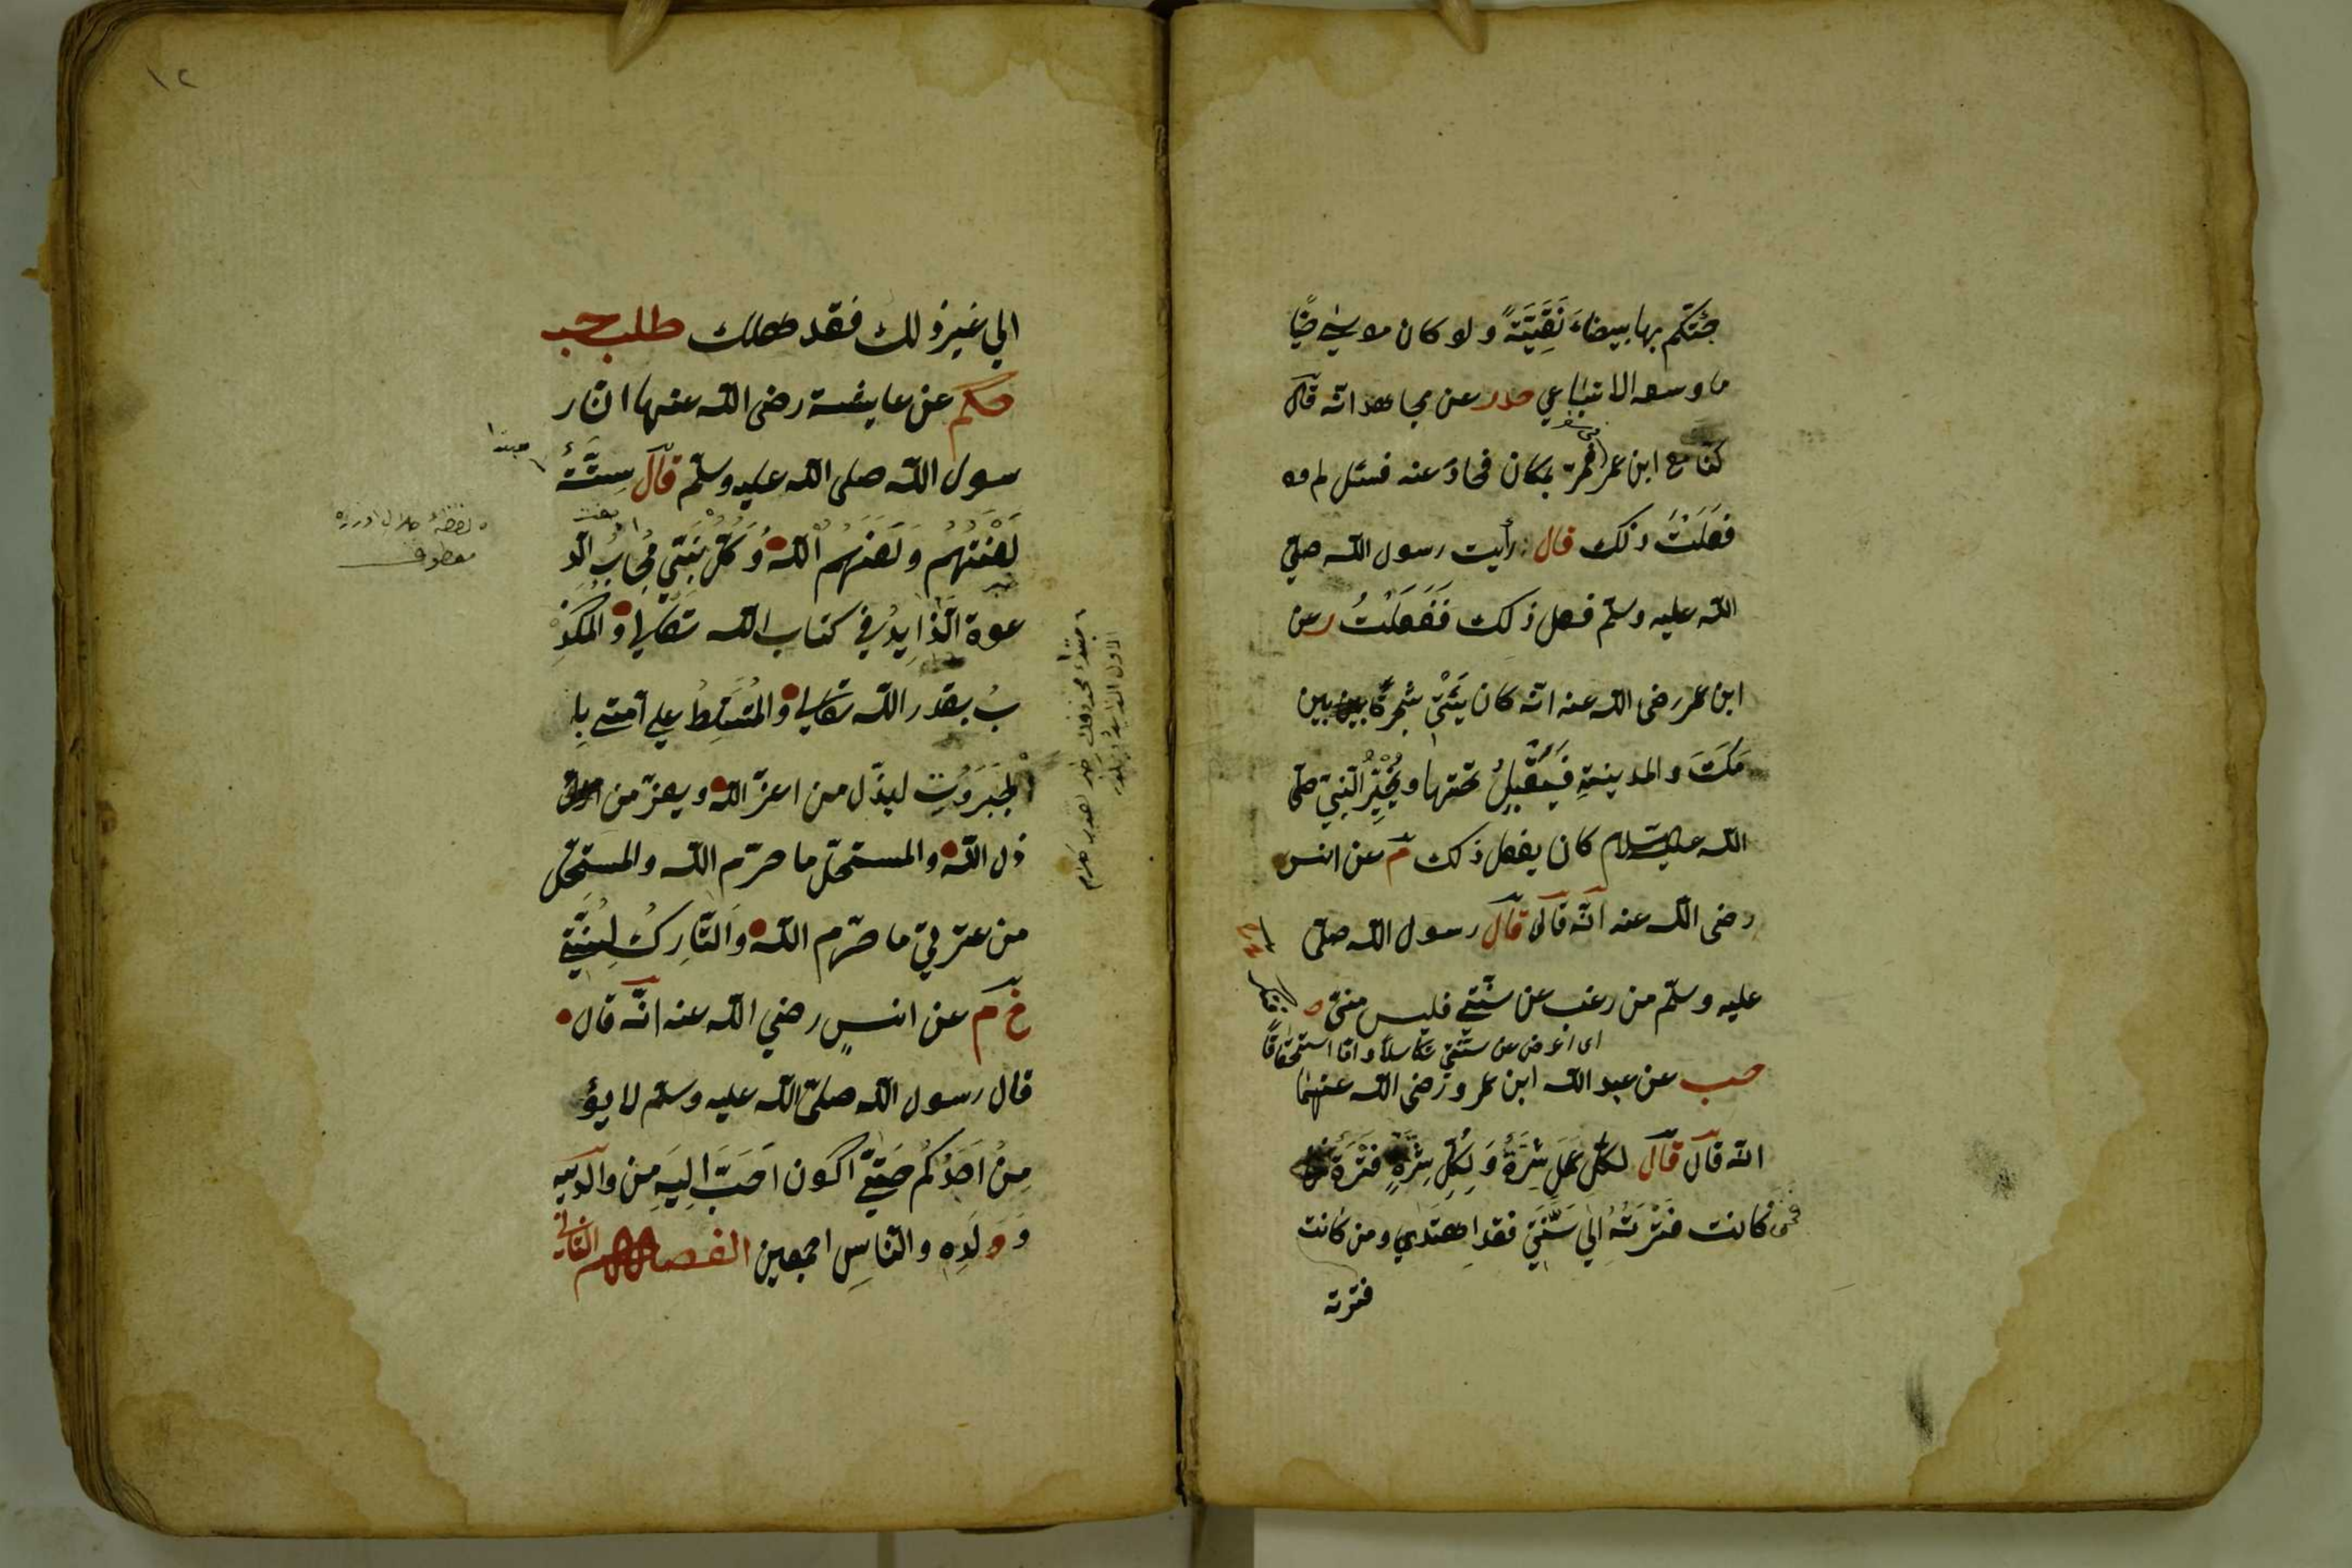 جئتكم بها بيضاء نَقِيَّةً ولو كان موسي حيًّا
ما وسعه الا اتباعي حدر عن مجاهد انّه قال
كنّا مع ابن عمر فمرّ بمكان فحادَ عنه فسئل لم
فعَلتَ ذلك قال رأيت رسول اللّه صلي
اللّه عليه وسلّم فعل ذلك فَفَعَلْتُ ر عن
ابن عمر رضى اللّه عنه انّه كان يأتي شجرةً بين
مكَّتَ والمدينةِ فيَقْيلُ تحتها ويُخبرُ النّبيّ صلّى
اللّه عليه السّلام كان يفعل ذلك م عن انس
رضى اللّه عنه انّه قال قال رسول اللّه صلّى
عليه وسلّم من رغب عن سُنّتي فليس منّى
اى اعرض عن سنّتي تكاسلًا واما استحقاقًا
حب عن عبد اللّه ابن عمر و رضى اللّه عنهما
انّه قال قال لكلّ عَمَلٍ شِرَّةٌ وَلِكلِّ شِرَّةٍ فَتْرَةٌ
فمن كانت فَتْرَتُهُ اِلي سُنَّتِي فقد اِهتَدي ومن كانت
فترته
١٢
الي غير ذلك فقد هلك طلب حب
حكم عن عايشة رضى اللّه عنها انّ ر
سول اللّه صلى اللّه عليه وسلّم قال سِتَّةٌ
مبتدا
لَعَنْتُهُم وَلَعَنَهُم اللّهُ وَكلّ نبيّ مُجابُ الدّ
لفظة
معطوف
عوة الزّايدُ في كتاب اللّه تعالي والمكذِّ
بُ بقدر اللّه تعالي والمُتَسَلِّطُ علي امّتى بِا
لجَبَرَوُتِ ليذّل من اعزّ اللّه ويعزّ من
ذل اللّه والمستحلّ ما حرّم اللّه والمستحلّ
من عترتيّ ما حرّم اللّه وَالتّارِكُ لِسُنَّتِي
خ م عن انسٍ رضي اللّه عنه انّه قال
قال رسول اللّه صلّى اللّه عليه وسلّم لا يؤ
مِنُ اَحَدُكُم حَتّيّ اكون اَحَبَّ اِليهِ مِن والدَيه
وَوَلَدِه والنّاسِ اجمعين الفصل الثاني